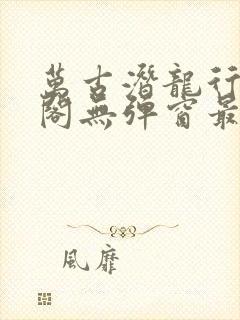 萬古潛龍行
閣無彈窗最
風靡